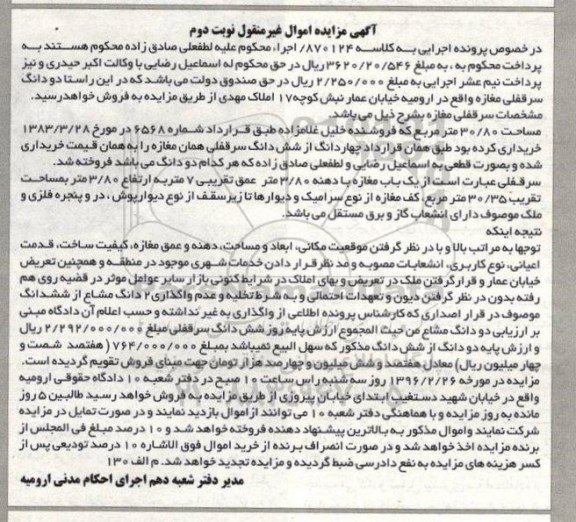 آگهی مزایده اموال غیرمنقول نوبت دوم
در خصوص پرونده اجرایی به کلاسه ۸۷۰۱۲۴/ اجرا، محکوم علیه لطفعلی صادق زاده محکوم هستند به
پرداخت محکوم به ، به مبلغ ۳۶۲۰/۲۰/۵۴۶ ریال در حق محکوم له اسماعیل رضایی با وکالت اکبر حیدری و نیز
پرداخت نیم عشر اجرایی به مبلغ ۲/۲۵۰/۰۰۰ ریال در حق صندوق دولت می باشد که در این راستا دو دانگ
سرقفلی مغازه واقع در ارومیه خیابان عمار نبش کوچه ۱۷ املاک مهدی از طریق مزایده به فروش خواهدرسید.
مشخصات سرقفلی مغازه بشرح ذیل می باشد.
مساحت ۳۰/۸۰ متر مربع که فروشنده خلیل غلامزاده طبق قرارداد شماره ۶۵۶۸ در مورخ ۱۳۸۳/۳/۲۸
خریداری کرده بود طبق همان قرارداد چهاردانگ از شش دانگ سرقفلی همان مغازه را به همان قیمت خریداری
شده و بصورت قطعی به اسماعیل رضایی و لطفعلی صادق زاده که هر کدام دو دانگ می باشد فروخته شد.
سرقفلی عبارت است از یک باب مغازه با دهنه ۳/۸۰ متر عمق تقریبی ۷ متر به ارتفاع ۳/۸۰ متر بمساحت
تقریب ۳۰/۳۵ متر مربع، کف مغازه از نوع سرامیک و دیوارها تا زیر سقف از نوع دیوارپوش ، در و پنجره فلزی و
ملک موصوف دارای انشعاب گاز و برق مستقل می باشد.
نتیجه اینکه
توجها به مراتب بالا و با در نظر گرفتن موقعیت مکانی، ابعاد و مساحت، دهنه و عمق مغازه، کیفیت ساخت، قدمت
اعیانی، نوع کاربری، انشعابات مصوبه و مد نظر قرار دادن خدمات شهری موجود در منطقه و همچنین تعریض
خیابان عمار و قرار گرفتن ملک در تعریض و بهای املاک در شرایط کنونی بازار سایر عوامل موثر در قضیه روی هم
رفته بدون در نظر گرفتن دیون و تعهدات احتمالی و به شرط تخلیه و عدم واگذاری ۲ دانگ مشاع از ششدانگ
موصوف در قرار اصداری که کارشناس پرونده اطلاعی از واگذاری به غیر نداشته و حسب اعلام آن دادگاه مبنی
بر ارزیابی دو دانگ مشاع من حیث المجموع ارزش پایه روز شش دانگ سرقفلی مبلغ ۲/۲۹۲/۰۰۰/۰۰۰ ریال
و ارزش پایه دو دانگ از شش دانگ مذکور که سهل البیع نمیباشد بمبلغ ۷۶۴/۰۰۰/۰۰۰ ( هفتصد شصت و
چهار میلیون ریال) معادل هفتصد و شش میلیون و چهارصد هزار تومان جهت مبنای فروش تقویم گردیده است.
مزایده در مورخه ۱۳۹۶/۲/۲۶ روز سه شنبه راس ساعت ۱۰ صبح در دفتر شعبه ۱۰ دادگاه حقوقی ارومیه
واقع در خیابان شهید دستغیب ابتدای خیابان پیروزی از طریق مزایده به فروش خواهد رسید طالبین ۵ روز
مانده به روز مزایده و با هماهنگی دفتر شعبه ۱۰ می توانند از اموال بازدید نمایند و در صورت تمایل در مزایده
شرکت نمایند و اموال مذکور به بالاترین پیشنهاد دهنده فروخته خواهد شد و ۱۰ درصد مبلغ فی المجلس از
برنده مزایده اخذ خواهد شد و در صورت انصراف برنده از خرید اموال فوق الاشاره ۱۰ درصد تودیعی پس از
کسر هزینه های مزایده به نفع دادرسی ضبط گردیده و مزایده تجدید خواهد شد. م الف ۱۳۰
مدیر دفتر شعبه دهم اجرای احکام مدنی ارومیه